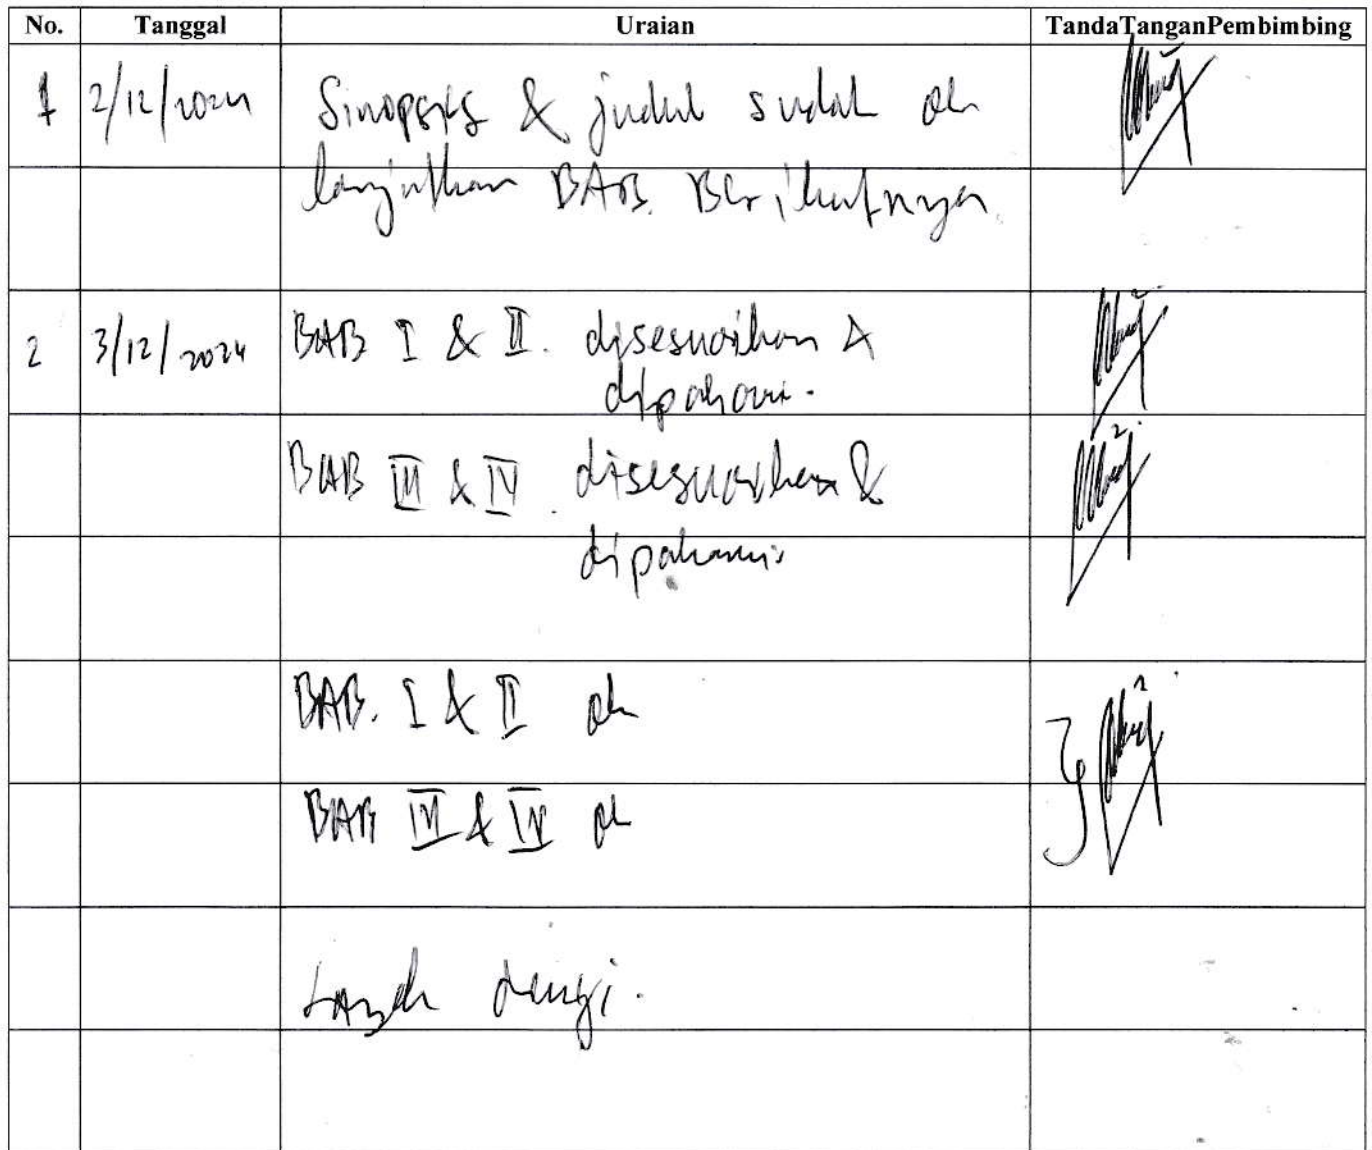 No. Tanggal Uraian TandaTanganPembimbing
1 2/12/2024 Sinopsis & judul sudah ok
lanjutkan BAB. Berikutnya.
2 3/12/2024 BAB I & II. disesuaikan &
dipahami.
BAB III & IV. disesuaikan &
dipahami
BAB. I & II ok
BAB III & IV ok
diuji.